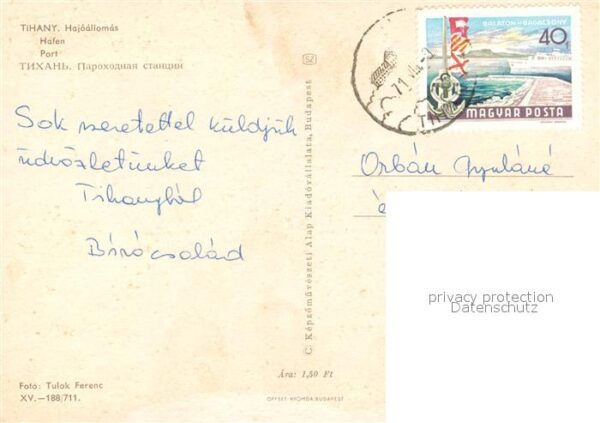 TIHANY. Hajóállomás
Hafen
Port
ТИХАНЬ. Пароходная станция
Sok szeretettel küldjük
üdvözletünket
Tihanyból
Bíró család
Foto: Tulok Ferenc
XV.—188/711.
© Képzőművészeti Alap Kiadóvállalata, Budapest
Ára: 1,50 Ft
OFFSET-NYOMDA BUDAPEST
BALATON-BADACSONY
40f
MAGYAR POSTA
71 VII.
Orbán Gyuláné
privacy protection
Datenschutz